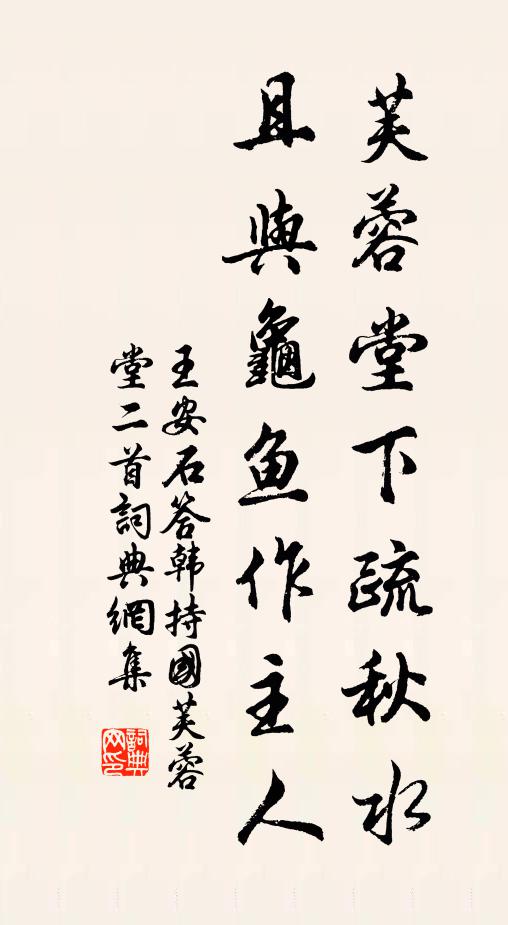 芙蓉堂下疏秋水
且與龜魚作主人
王安石答韩持國芙蓉
堂二首詞典網集
詞典网印